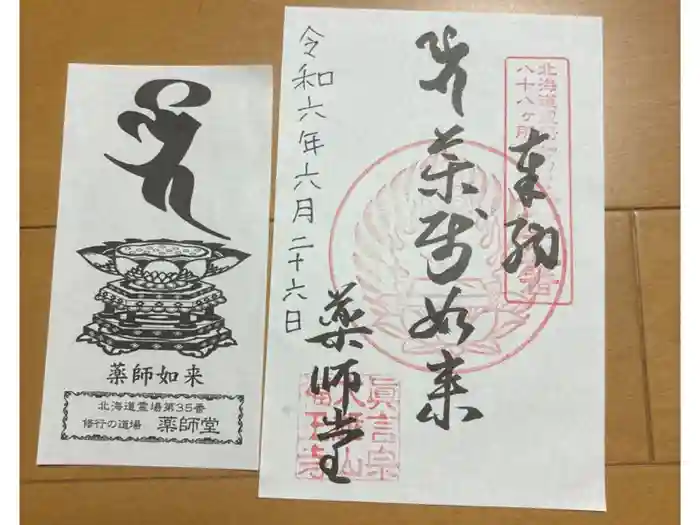 薬師如来
北海道霊場第35番
修行の道場 薬師堂
奉納
薬師如来
薬師堂
令和六年六月二十六日
北海道
八十八ヶ所
眞言宗